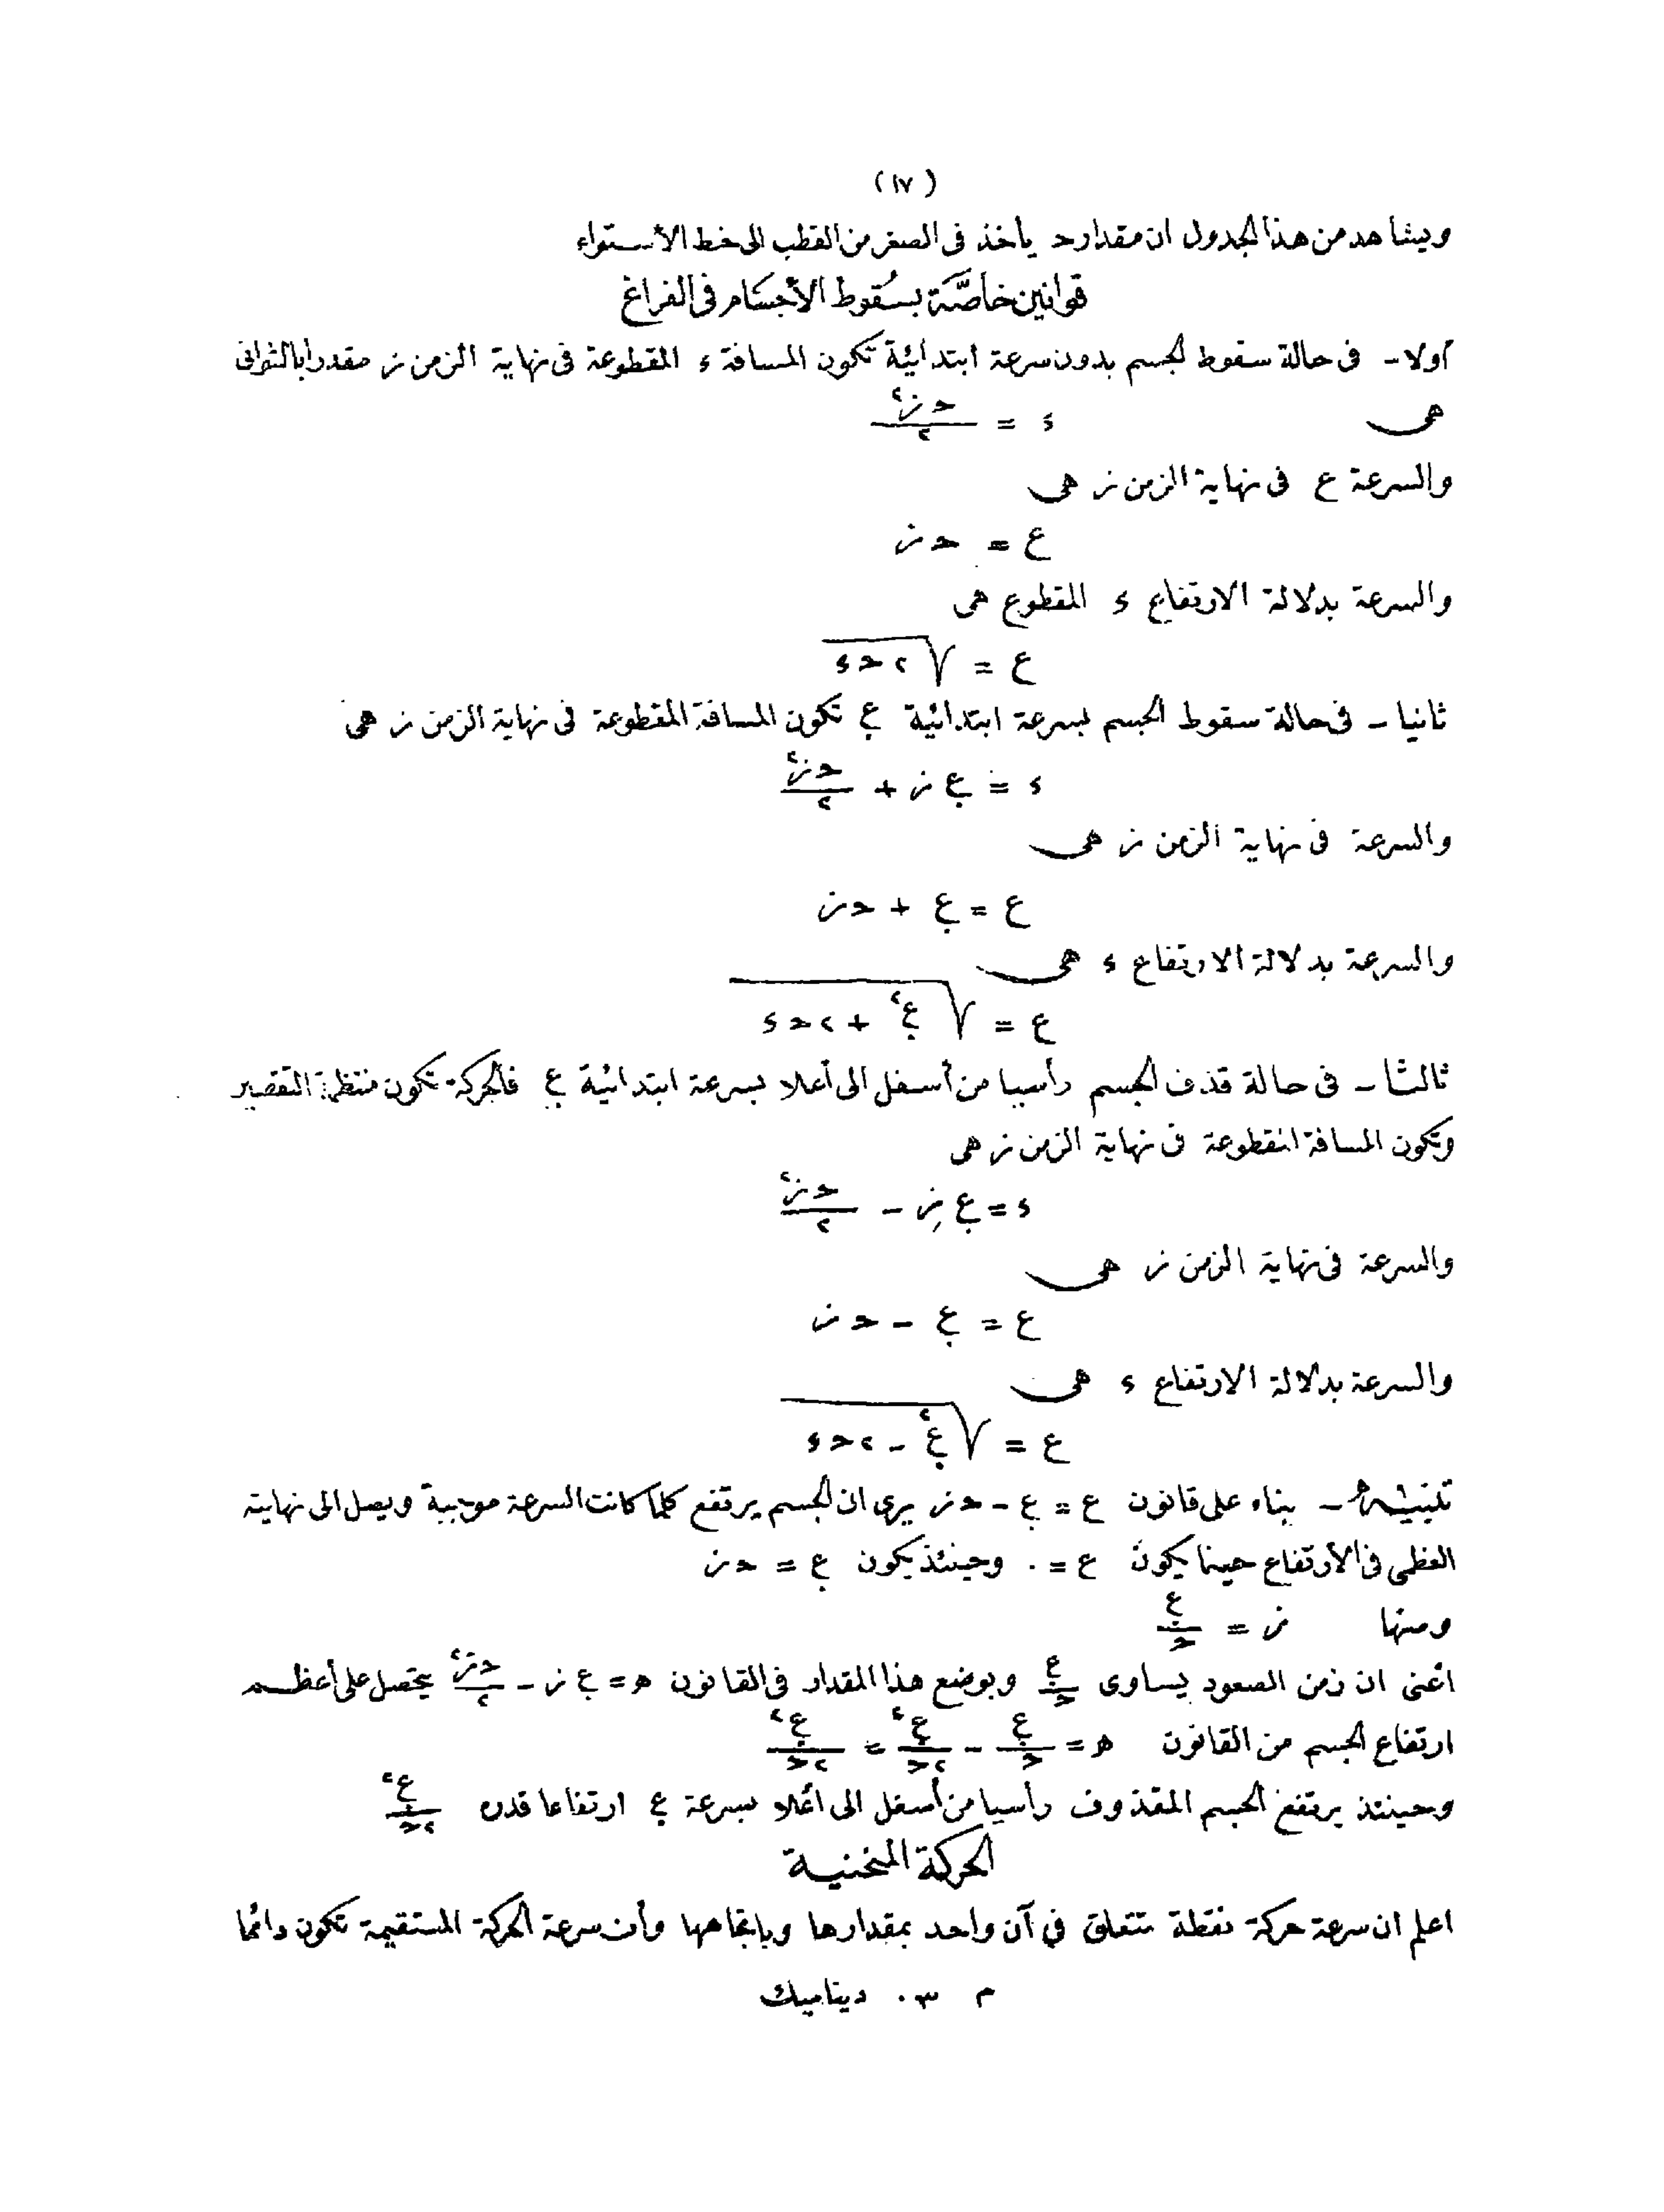 (١٧)
ويشاهد من هذا الجدول ان مقدار حـ يأخذ فى الصغر من القطب الى خط الأستواء
قوانين خاصَّة بسُقوط الأجسَام فى الفراغ
أولا ـ فى حالة سقوط الجسم بدون سرعة ابتدائية تكون المسافة ء المقطوعة فى نهاية الزمن ز مقدرا بالثوانى
هى ء = حـ ز٢ / ٢
والسرعة ع فى نهاية الزمن ز هى
ع = حـ ز
والسرعة بدلالة الارتفاع ء المقطوع هى
ع = √ ٢ حـ ء
ثانيا ـ فى حالة سقوط الجسم بسرعة ابتدائية ع. تكون المسافة المقطوعة فى نهاية الزمن ز هى
ء = ع. ز + حـ ز٢ / ٢
والسرعة فى نهاية الزمن ز هى
ع = ع. + حـ ز
والسرعة بدلالة الارتفاع ء هى
ع = √ ع.٢ + ٢ حـ ء
ثالثا ـ فى حالة قذف الجسم رأسيا من أسفل الى أعلا بسرعة ابتدائية ع. فالحركة تكون منتظمة التقصير
وتكون المسافة المقطوعة فى نهاية الزمن ز هى
ء = ع. ز - حـ ز٢ / ٢
والسرعة فى نهاية الزمن ز هى
ع = ع. - حـ ز
والسرعة بدلالة الارتفاع ء هى
ع = √ ع.٢ - ٢ حـ ء
تنبيه ـ بناء على قانون ع = ع. - حـ ز يرى ان الجسم يرتفع كلما كانت السرعة موجبة ويصل الى نهايته
العظمى فى الأرتفاع حينما يكون ع = ٠ وحينئذ يكون ع. = حـ ز
ومنها ز = ع. / حـ
أعنى ان زمن الصعود يساوى ع. / حـ وبوضع هذا المقدار فى القانون ه = ع. ز - حـ ز٢ / ٢ يتحصل على أعظم
ارتفاع الجسم من القانون ه = ع.٢ / حـ - ع.٢ / ٢حـ = ع.٢ / ٢حـ
وحينئذ يرتفع الجسم المقذوف رأسيا من أسفل الى أعلا بسرعة ع. ارتفاعا قدره ع.٢ / ٢حـ
الحركة المنحنية
اعلم ان سرعة حركة نقطة تتعلق في آن واحد بمقدارها وباتجاهها وأن سرعة الحركة المستقيمة تكون دائما
م ٣٠ ديناميك